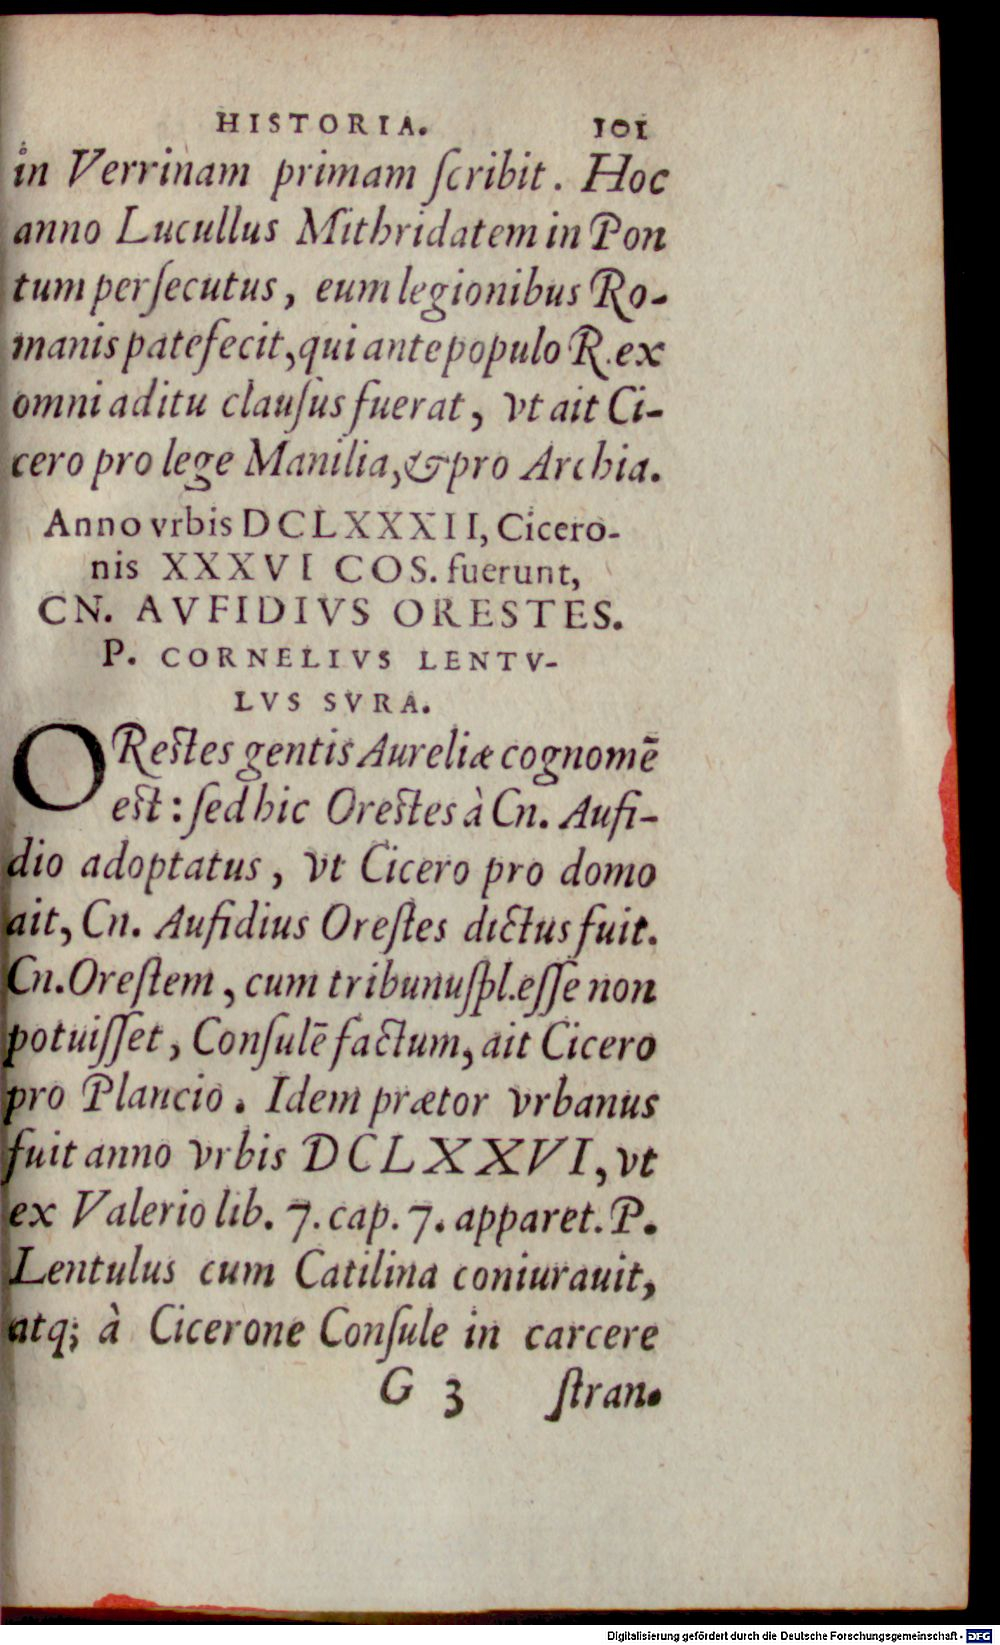 HISTORIA. 101
in Verrinam primam ſcribit. Hoc
anno Lucullus Mithridatem in Pon
tum perſecutus, eum legionibus Ro-
manis patefecit, qui ante populo R. ex
omni aditu clauſus fuerat, vt ait Ci-
cero pro lege Manilia, & pro Archia.
Anno vrbis DCLXXXII, Cicero-
nis XXXVI COS. fuerunt,
CN. AVFIDIVS ORESTES.
P. CORNELIVS LENTV-
LVS SVRA.
ORestes gentis Aureliæ cognomē
est: ſed hic Orestes à Cn. Aufi-
dio adoptatus, vt Cicero pro domo
ait, Cn. Aufidius Oreſtes dictus fuit.
Cn. Oreſtem, cum tribunuſpl. eſſe non
potuiſſet, Conſulē factum, ait Cicero
pro Plancio. Idem prætor vrbanus
fuit anno vrbis DCLXXVI, vt
ex Valerio lib. 7. cap. 7. apparet. P.
Lentulus cum Catilina coniurauit,
atq; à Cicerone Conſule in carcere
G 3 ſtran.
Digitalisierung gefördert durch die Deutsche Forschungsgemeinschaft - DFG